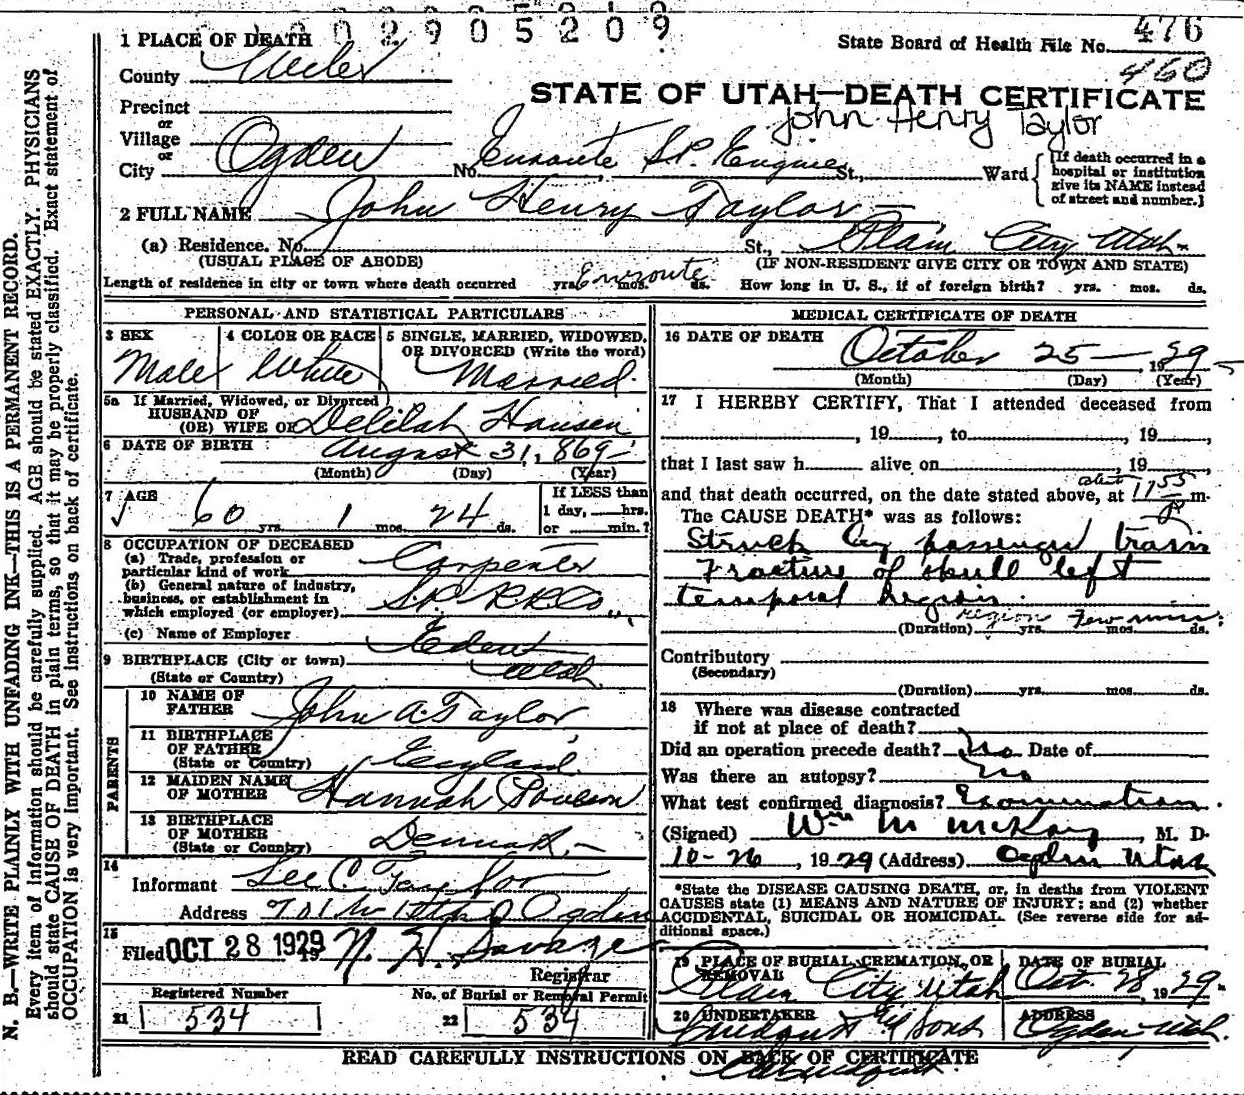 0 0 2 9 0 5 2 0 9
476
State Board of Health File No.
460
1 PLACE OF DEATH
County Weber
STATE OF UTAH—DEATH CERTIFICATE
John Henry Taylor
Precinct
or
Village
or
City Ogden No. Enroute S.P. Engine St., Ward
[If death occurred in a hospital or institution give its NAME instead of street and number.]
2 FULL NAME John Henry Taylor
(a) Residence. No. St., Plain City, Utah.
(USUAL PLACE OF ABODE) (IF NON-RESIDENT GIVE CITY OR TOWN AND STATE)
Length of residence in city or town where death occurred yrs. Enroute mos. ds. How long in U. S., if of foreign birth? yrs. mos. ds.
PERSONAL AND STATISTICAL PARTICULARS
3 SEX Male
4 COLOR OR RACE White
5 SINGLE, MARRIED, WIDOWED, OR DIVORCED (Write the word) Married.
5a If Married, Widowed, or Divorced
HUSBAND OF
(OR) WIFE OF Delilah Hansen
6 DATE OF BIRTH August 31, 869
(Month) (Day) (Year)
7 AGE 60 yrs. 1 mos. 24 ds.
If LESS than 1 day, hrs. or min.?
8 OCCUPATION OF DECEASED
(a) Trade, profession or particular kind of work Carpenter
(b) General nature of industry, business, or establishment in which employed (or employer) S.P. R.R. Co.,
(c) Name of Employer
9 BIRTHPLACE (City or town) Eden
(State or Country) Utah
PARENTS
10 NAME OF FATHER John A. Taylor
11 BIRTHPLACE OF FATHER (State or Country) England.
12 MAIDEN NAME OF MOTHER Hannah Poulson
13 BIRTHPLACE OF MOTHER (State or Country) Denmark.
14
Informant Lee C. Taylor
Address Ogden
15
Filed OCT 28 1929 19 N. H. Savage
Registrar
Registered Number
21 534
No. of Burial or Removal Permit
22 534
MEDICAL CERTIFICATE OF DEATH
16 DATE OF DEATH October 25 1929
(Month) (Day) (Year)
17 I HEREBY CERTIFY, That I attended deceased from
, 19 , to , 19 ,
that I last saw h alive on , 19
and that death occurred, on the date stated above, at about 1155 P m.
The CAUSE DEATH* was as follows:
Struck by passenger train
Fracture of skull left
temporal Region.
region
(Duration) yrs. Few mins. mos. ds.
Contributory
(Secondary)
(Duration) yrs. mos. ds.
18 Where was disease contracted
if not at place of death?
Did an operation precede death? No Date of
Was there an autopsy? No
What test confirmed diagnosis? Examination.
(Signed) Wm M McKay, M. D.
10-26, 1929 (Address) Ogden Utah
*State the DISEASE CAUSING DEATH, or, in deaths from VIOLENT
CAUSES state (1) MEANS AND NATURE OF INJURY; and (2) whether
ACCIDENTAL, SUICIDAL OR HOMICIDAL. (See reverse side for ad-
ditional space.)
19 PLACE OF BURIAL, CREMATION, OR REMOVAL
Plain City, Utah
DATE OF BURIAL
Oct. 28, 1929.
20 UNDERTAKER
Lindquist & Sons
ADDRESS
Ogden, Utah.
READ CAREFULLY INSTRUCTIONS ON BACK OF CERTIFICATE
N. B.—WRITE PLAINLY WITH UNFADING INK—THIS IS A PERMANENT RECORD.
Every item of information should be carefully supplied. AGE should be stated EXACTLY. PHYSICIANS
should state CAUSE OF DEATH in plain terms, so that it may be properly classified. Exact statement of
OCCUPATION is very important. See instructions on back of certificate.